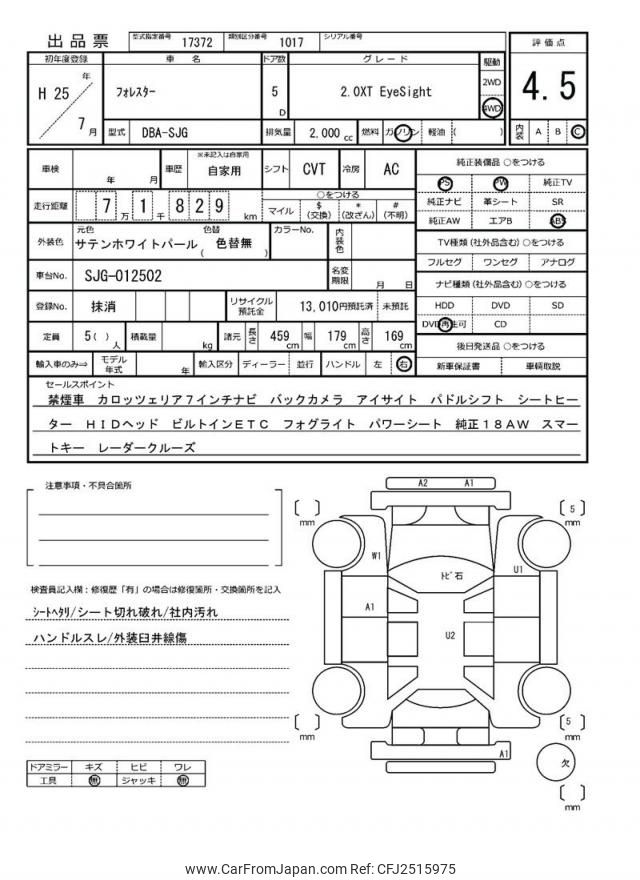 出品票 型式指定番号 17372 類別区分番号 1017 シリアル番号
初年度登録 車 名 ドア数 グレード 駆動 評価点
H 25 年 7 月 フォレスター 5 D 2.0XT EyeSight 2WD 4WD 4.5
型式 DBA-SJG 排気量 2,000 cc 燃料 ガソリン 軽油 ( ) 内装 A B C
車検 年 月 車歴 ※未記入は自家用 自家用 シフト CVT 冷房 AC 純正装備品 ○をつける
PS PW 純正TV
走行距離 7 万 1 千 8 2 9 km ○をつける
マイル $ (交換) * (改ざん) # (不明)
純正ナビ 革シート SR
純正AW エアB ABS
外装色 元色 サテンホワイトパール 色替 ( 色替無 ) カラーNo. 内装色
TV種類 (社外品含む) ○をつける
フルセグ ワンセグ アナログ
車台No. SJG-012502 名変期限 月 日
ナビ種類 (社外品含む) ○をつける
登録No. 抹消 リサイクル預託金 13,010円預託済 未預託
HDD DVD SD
DVD再生可 CD
定員 5( ) 人 積載量 kg 諸元 長さ 459 cm 幅 179 cm 高さ 169 cm
後日発送品 ○をつける
輸入車のみ⇒ モデル年式 年 輸入区分 ディーラー 並行 ハンドル 左 右
新車保証書 車輌取説
セールスポイント
禁煙車 カロッツェリア7インチナビ バックカメラ アイサイト パドルシフト シートヒー
ター HIDヘッド ビルトインETC フォグライト パワーシート 純正18AW スマー
トキー レーダークルーズ
注意事項・不具合箇所
検査員記入欄：修復歴「有」の場合は修復箇所・交換箇所を記入
シートヘタリ/シート切れ破れ/社内汚れ
ハンドルスレ/外装臼井線傷
ドアミラー キズ ヒビ ワレ
工具 無 ジャッキ 無
A2 A1
[ ] mm
[ 5 ] mm
W1
U1
トビ石
A1
U2
[ ] mm
[ 5 ] mm
A1
欠
[ ] mm
www.CarFromJapan.com Ref: CFJ2515975